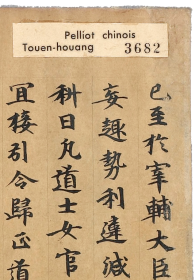 Pelliot chinois
Touen-houang 3682
已至於宰輔大臣
妄趣勢利違減
科曰凡道士女官
宜接引令歸正道